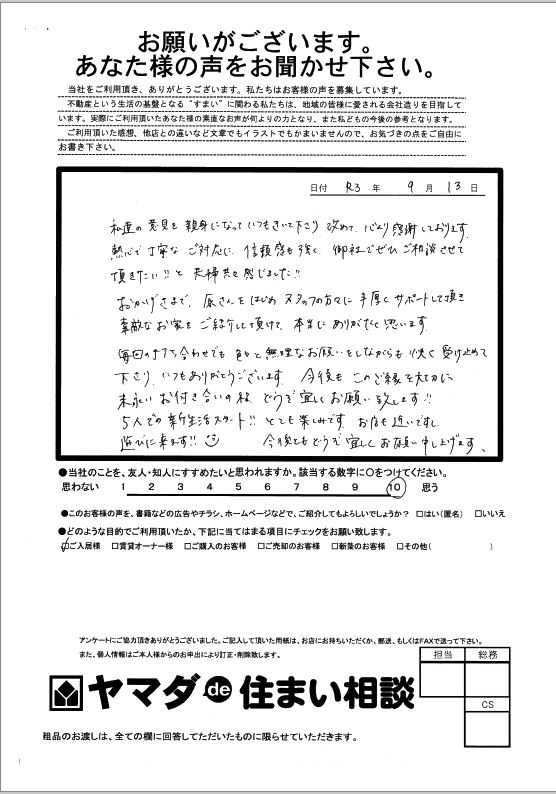 お願いがございます。
あなた様の声をお聞かせ下さい。
当社をご利用頂き、ありがとうございます。私たちはお客様の声を募集しています。
不動産という生活の基盤となる“すまい”に関わる私たちは、地域の皆様に愛される会社造りを目指して
います。実際にご利用頂いたあなた様の素直なお声が何よりの力となり、また私どもの今後の参考となります。
ご利用頂いた感想、他店との違いなど文章でもイラストでもかまいませんので、お気づきの点をご自由に
お書き下さい。
日付 R3 年 9 月 13 日
私達の意見を親身になっていつもきいて下さり 改めて、心より感謝しております。
熱心で丁寧なご対応に、信頼感も強く、御社でぜひご相談させて
頂きたい!!と夫婦共々感じました!!
おかげさまで、原さんをはじめ スタッフの方々に手厚くサポートして頂き
素敵なお家をご紹介して頂けて、本当にありがたく思います。
毎回の打ち合わせでも 色々と無理なお願いをしながらも 快く受け止めて
下さり、いつもありがとうございます。今後も このご縁を大切に
末永いお付き合いの程 どうぞ宜しくお願い致します!!
5人での新生活スタート!! とても楽しみです。お店も近いですし、
遊びに来ます!! 今後ともどうぞ宜しくお願い申し上げます。
●当社のことを、友人・知人にすすめたいと思われますか。該当する数字に〇をつけてください。
思わない 1 2 3 4 5 6 7 8 9 10 思う
●このお客様の声を、書籍などの広告やチラシ、ホームページなどで、ご紹介してもよろしいでしょうか? □はい(匿名) □いいえ
●どのような目的でご利用頂いたか、下記に当てはまる項目にチェックをお願い致します。
☑ご入居様 □賃貸オーナー様 □ご購入のお客様 □ご売却のお客様 □新築のお客様 □その他( )
アンケートにご協力頂きありがとうございました。ご記入して頂いた用紙は、お店にお持ちいただくか、郵送、もしくはFAXで送って下さい。
また、個人情報はご本人様からのお申出により訂正・削除致します。
担当 総務
ヤマダde住まい相談
CS
粗品のお渡しは、全ての欄に回答してただいたものに限らせていただきます。